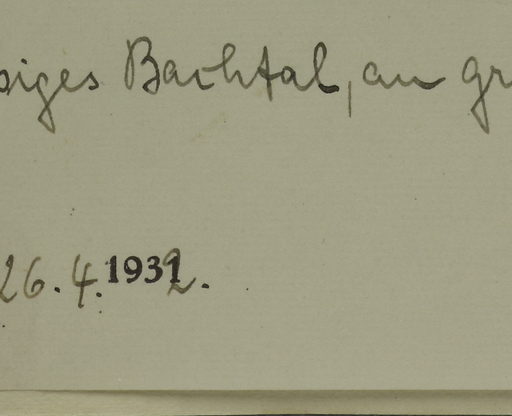 siges Bachtal, an gr
26.4.1932.